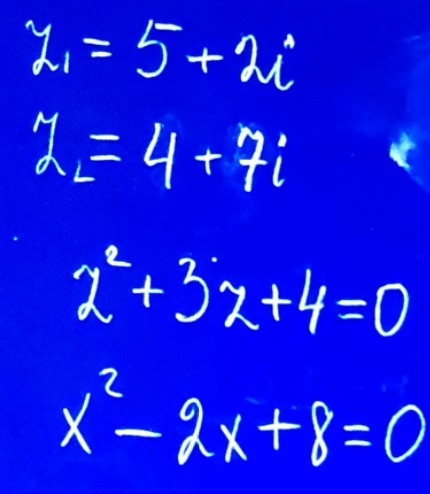 z₁ = 5 + 2i
z₂ = 4 + 7i
z² + 3z + 4 = 0
x² - 2x + 8 = 0